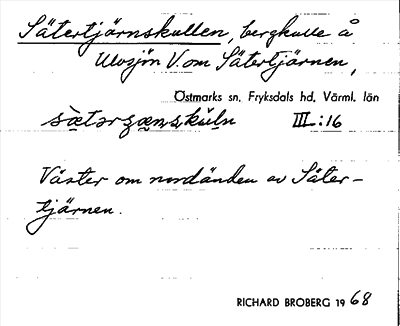 Sätertjärnskullen, bergkulle å
Ulvsjön V. om Sätertjärnen,
Östmarks sn, Fryksdals hd, Värml. län
III:16
Väster om nordänden av Säter-
tjärnen.
RICHARD BROBERG 1968